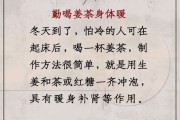 勤喝姜茶身体暖
冬天到了，怕冷的人可在
起床后，喝一杯姜茶，制
作方法很简单，就是用生
姜和茶或红糖一齐冲泡，
具有暖身补肾等作用。